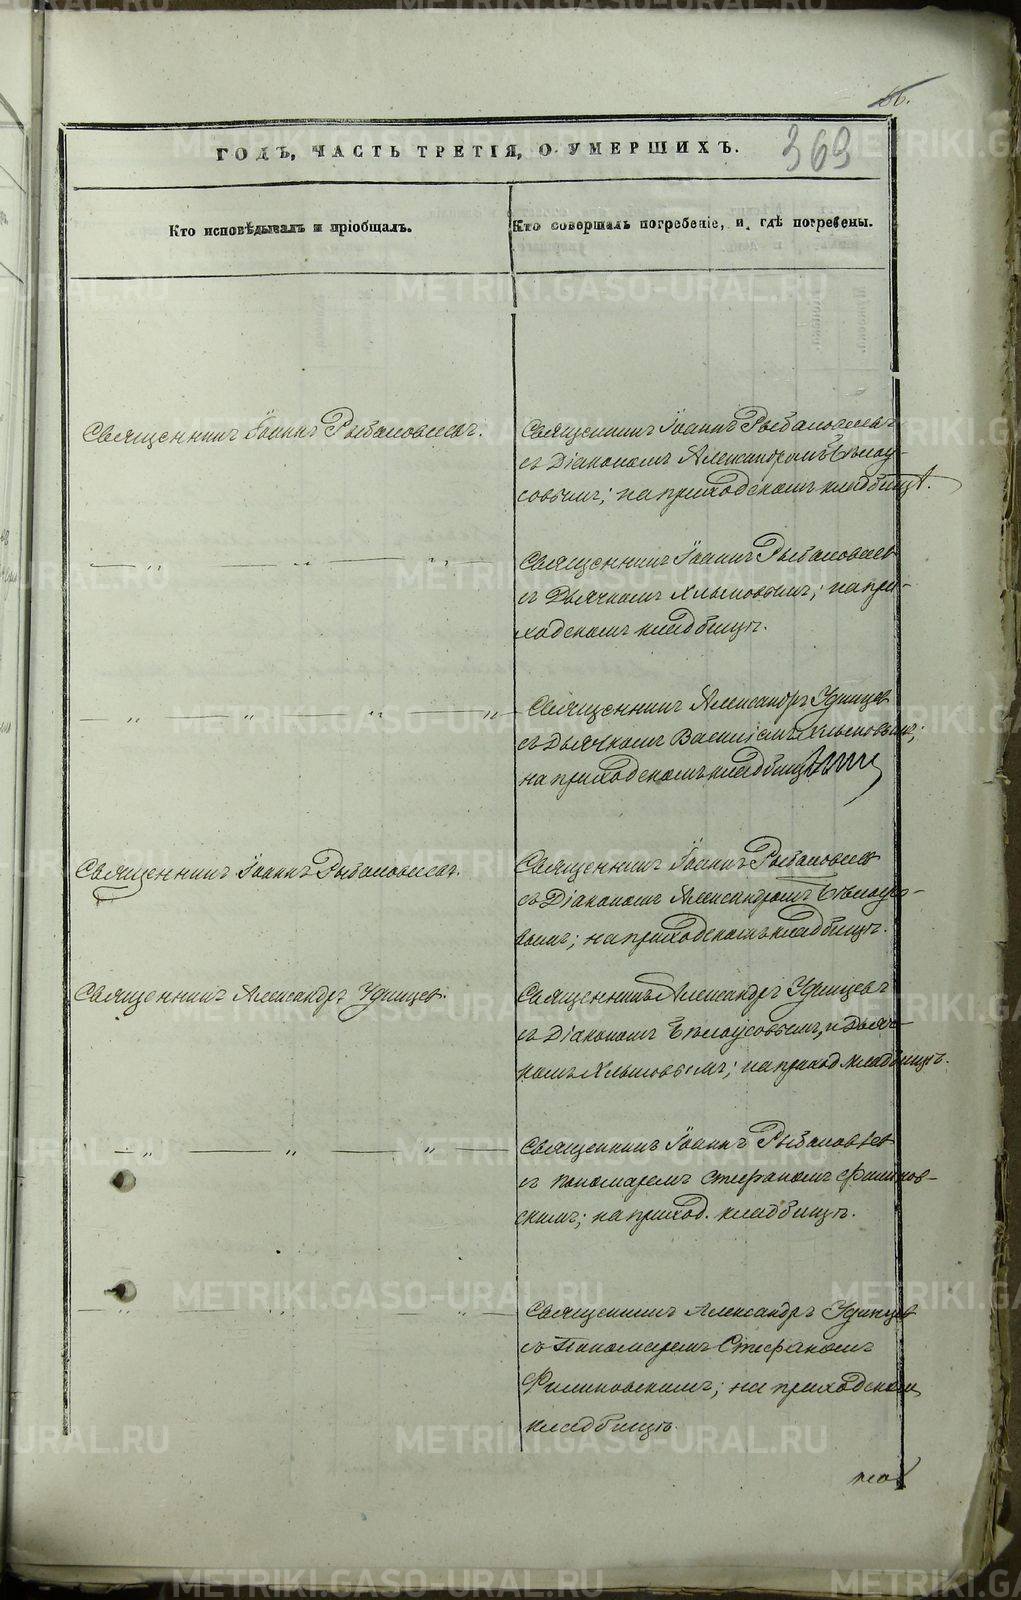 66.
369
ГОДЪ, ЧАСТЬ ТРЕТІЯ, О УМЕРШИХЪ.
Кто исповѣдывалъ и пріобщалъ.
Кто совершалъ погребеніе, и гдѣ погребены.
Священникъ Іоаннъ Рыболовлевъ.
Священникъ Іоаннъ Рыболовлевъ
съ Діакономъ Александромъ Бѣлоу-
совымъ; на приходскомъ кладбищѣ.
— „ — „ — „ —
Священникъ Іоаннъ Рыболовлев
съ Дьячкомъ Хлыновымъ; на при-
ходскомъ кладбищѣ.
— „ — „ — „ — „ —
Священникъ Александръ Удинцев
съ Дьячкомъ Василіемъ Хлыновымъ;
на приходскомъ кладбищѣ
Священникъ Іоаннъ Рыболовлевъ.
Священникъ Іоаннъ Рыболовлев
съ Діакономъ Александромъ Бѣлоусо-
вымъ; на приходскомъ кладбищѣ.
Священникъ Александръ Удинцев.
Священникъ Александръ Удинцевъ
съ Діакономъ Бѣлоусовымъ, и Дьяч-
комъ Хлыновымъ; на приход кладбищѣ.
— „ — „ — „ —
Священникъ Іоаннъ Рыболовлев
съ пономаремъ Стефаномъ
скимъ; на приход. кладбищѣ.
— „ — „ — „ —
Священникъ Александръ Удинцев
съ Пономаремъ Стефаномъ
на приходском
кладбищѣ.
METRIKI.GASO-URAL.RU